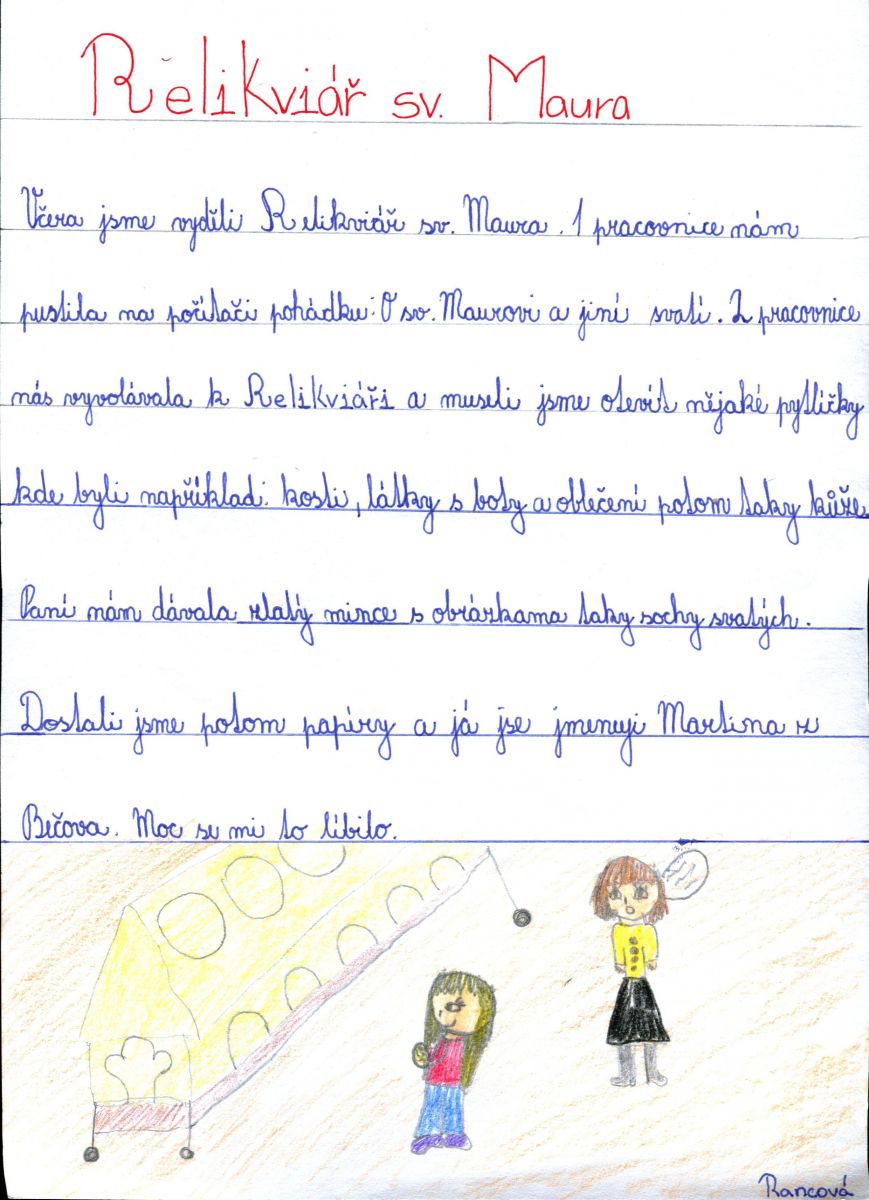 Relikviář sv. Maura
Včera jsme vyděli Relikviář sv. Maura. 1 pracovnice nám
pustila na počítači pohádku: O sv. Maurovi a jiní svatí. 2 pracovnice
nás vyvolávala k Relikviáři a museli jsme otevít nějaké pytlíčky
kde byli například: kosti, látky s boty a oblečení potom taky kůže
Paní nám dávala zlatý mince s obrázkama taky sochy svatých.
Dostali jsme potom papíry a já jse jmenuji Martina z
Bečova. Moc se mi to líbilo.
Rancová